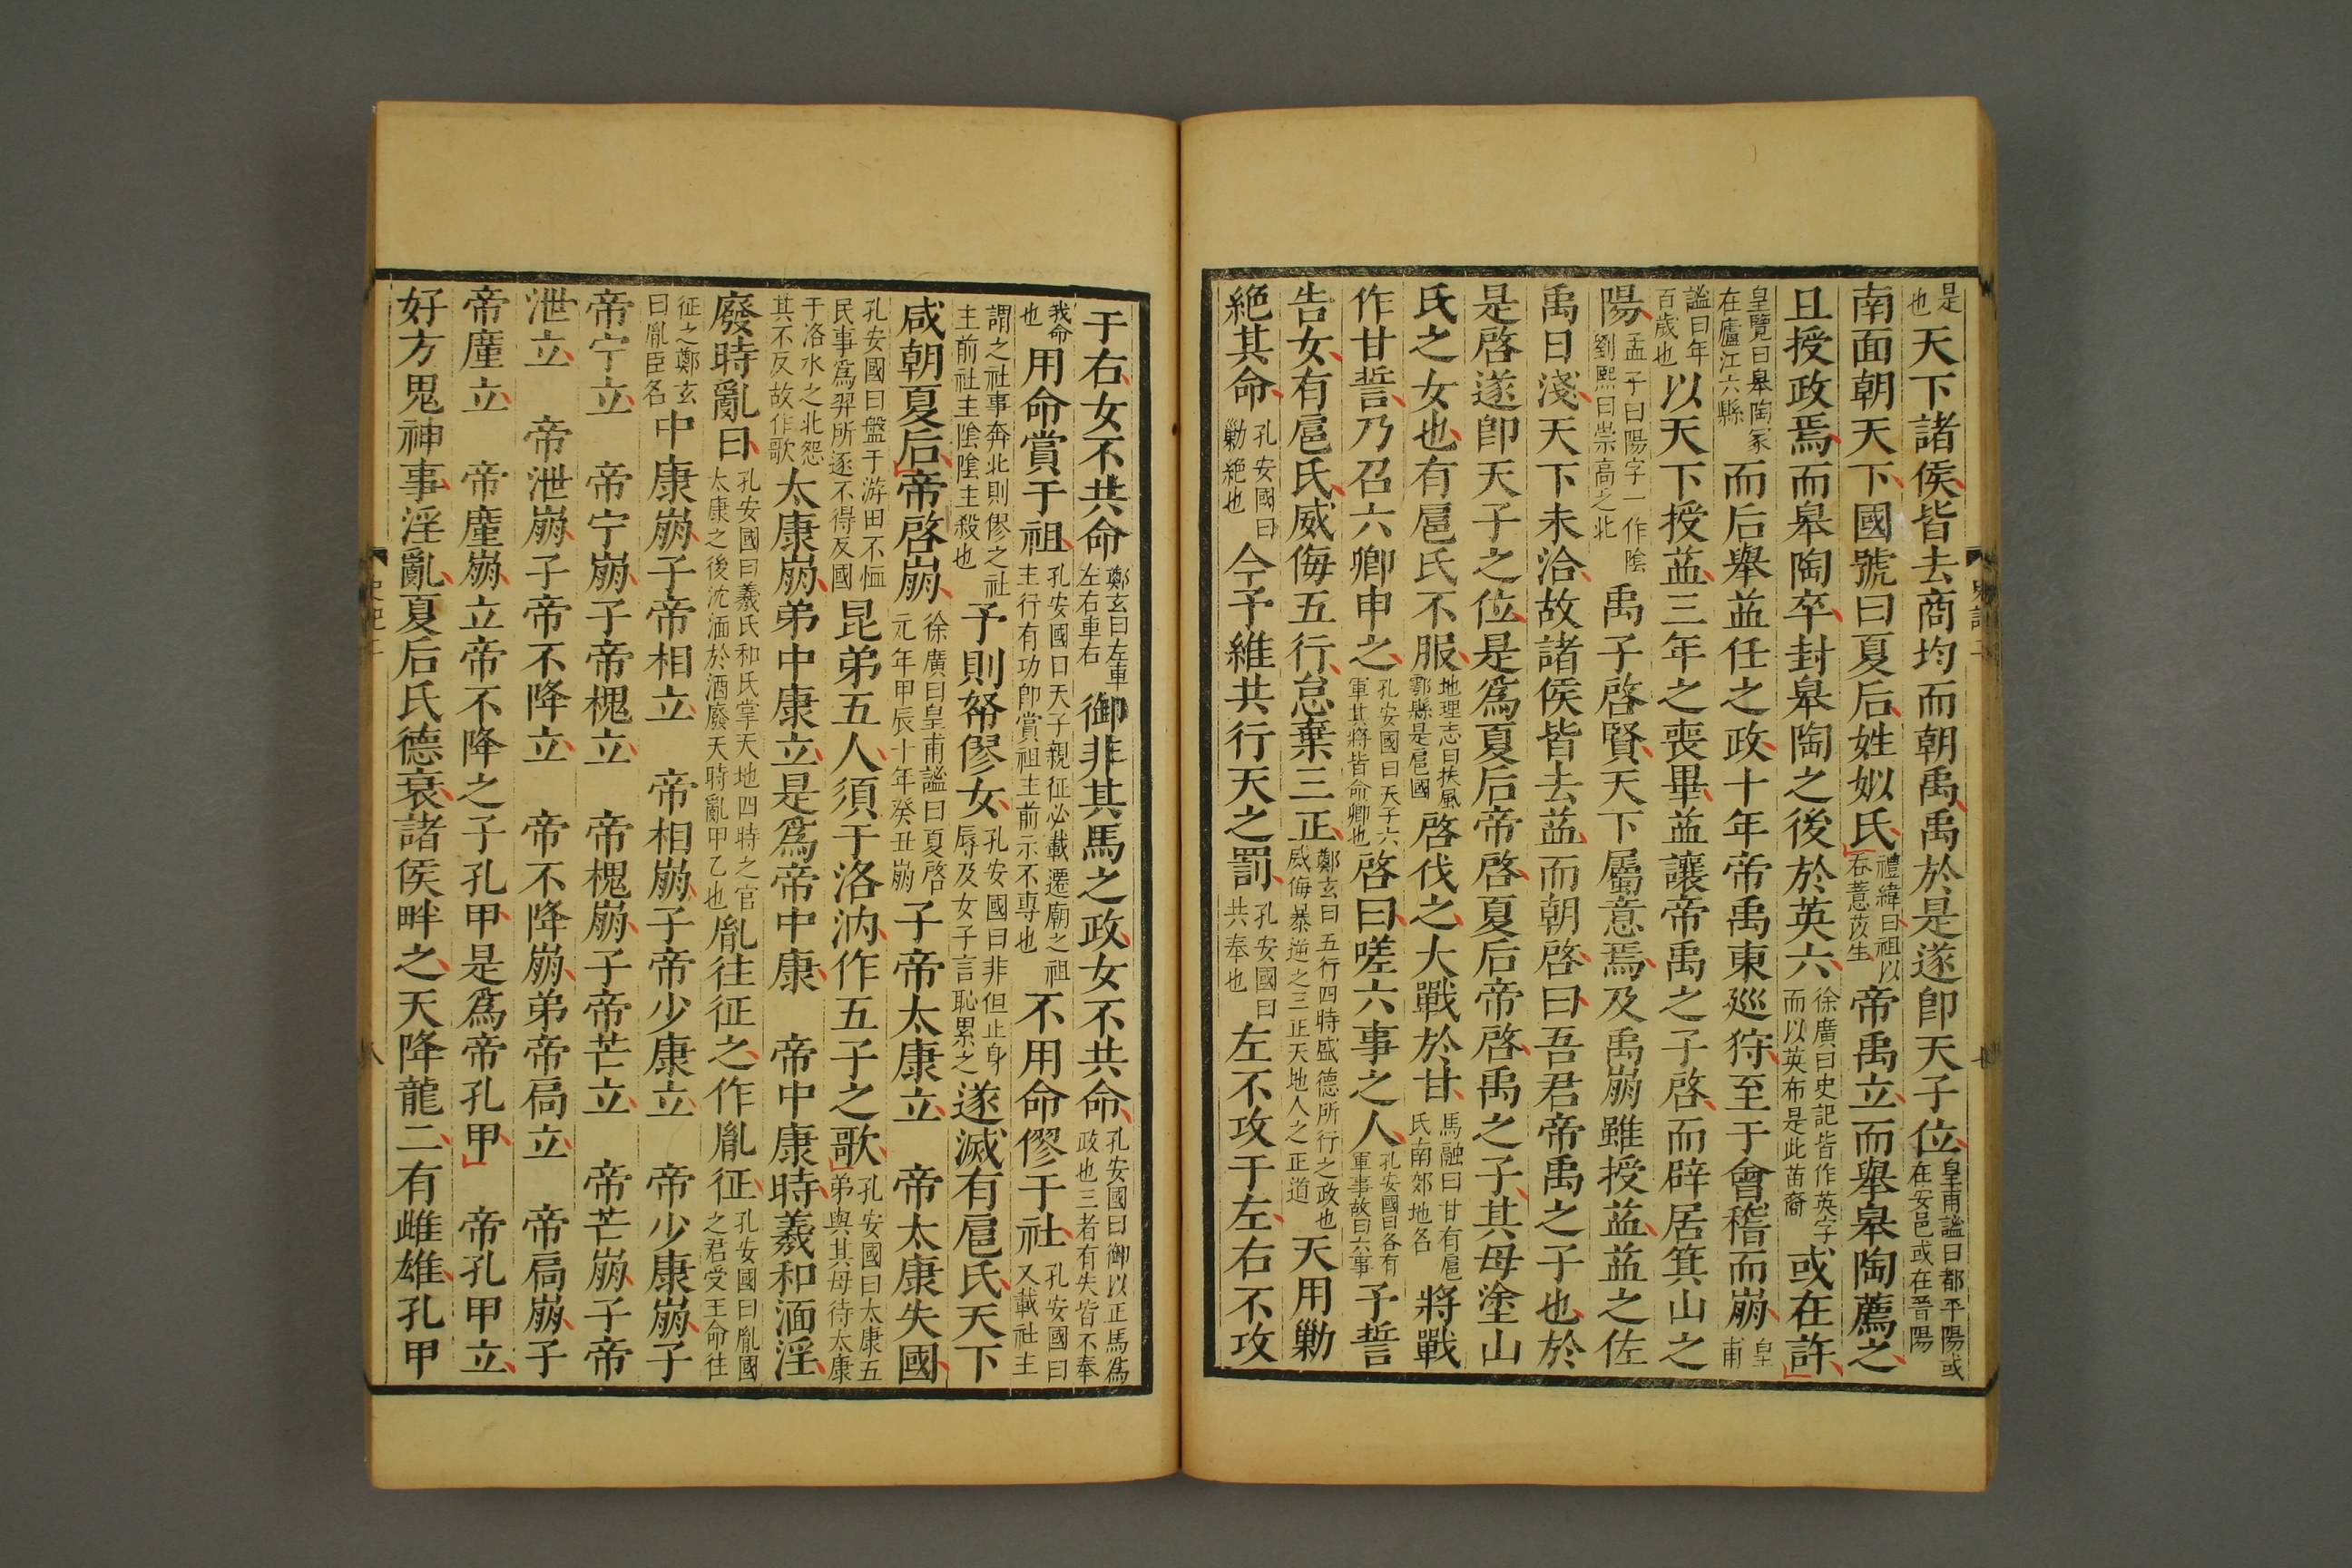 是也天下諸侯皆去商均而朝禹禹於是遂卽天子位皇甫謐曰都平陽或在安邑或在晉陽
南面朝天下國號曰夏后姓姒氏禮緯曰祖以吞薏苡生帝禹立而舉皋陶薦之
且授政焉而皋陶卒封皋陶之後於英六徐廣曰史記皆作英字而以英布是此苗裔或在許
皇覽曰皋陶冢在廬江六縣而后舉益任之政十年帝禹東廵狩至于會稽而崩皇甫
謐曰年百歲也以天下授益三年之喪畢益讓帝禹之子啓而辟居箕山之
陽孟子曰陽字一作陰劉熙曰崇高之北禹子啓賢天下屬意焉及禹崩雖授益益之佐
禹日淺天下未洽故諸侯皆去益而朝啓曰吾君帝禹之子也於
是啓遂卽天子之位是爲夏后帝啓夏后帝啓禹之子其母塗山
氏之女也有扈氏不服地理志曰扶風鄠縣是扈國啓伐之大戰於甘馬融曰甘有扈氏南郊地名將戰
作甘誓乃召六卿申之孔安國曰天子六軍其將皆命卿也啓曰嗟六事之人孔安國曰各有軍事故曰六事予誓
告女有扈氏威侮五行怠棄三正鄭玄曰五行四時盛德所行之政也威侮暴逆之三正天地人之正道天用勦
絶其命孔安國曰勦絶也今予維共行天之罰孔安國曰共奉也左不攻于左右不攻
于右女不共命鄭玄曰左車左右車右御非其馬之政女不共命孔安國曰御以正馬爲政也三者有失皆不奉
我命也用命賞于祖孔安國曰天子親征必載遷廟之祖主行有功卽賞祖主前示不專也不用命僇于社孔安國曰又載社主
謂之社事奔北則僇之社主前社主陰陰主殺也予則帑僇女孔安國曰非但止身辱及女子言恥累之遂滅有扈氏天下
咸朝夏后帝啓崩徐廣曰皇甫謐曰夏啓元年甲辰十年癸丑崩子帝太康立　帝太康失國
孔安國曰盤于游田不恤民事爲羿所逐不得反國昆弟五人須于洛汭作五子之歌孔安國曰太康五弟與其母待太康
于洛水之北怨其不反故作歌太康崩弟中康立是爲帝中康　帝中康時羲和湎淫
廢時亂日孔安國曰羲氏和氏掌天地四時之官太康之後沈湎於酒廢天時亂甲乙也胤往征之作胤征孔安國曰胤國之君受王命往
征之鄭玄曰胤臣名中康崩子帝相立　帝相崩子帝少康立　帝少康崩子
帝宁立　帝宁崩子帝槐立　帝槐崩子帝芒立　帝芒崩子帝
泄立　帝泄崩子帝不降立　帝不降崩弟帝扃立　帝扃崩子
帝廑立　帝廑崩立帝不降之子孔甲是爲帝孔甲　帝孔甲立
好方鬼神事淫亂夏后氏德衰諸侯畔之天降龍二有雌雄孔甲